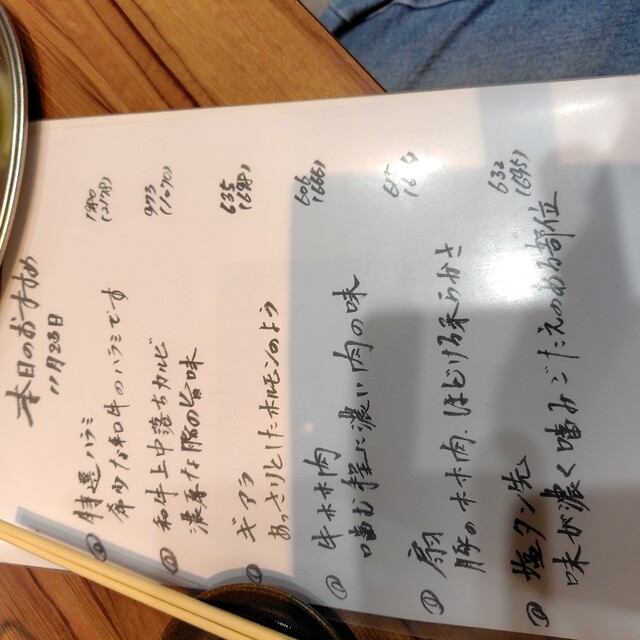 本日のおすすめ
11月28日
① 特選ハラミ
希少な和牛のハラミです
① 和牛上中落ちカルビ
濃厚な脂の旨味
① ギアラ
あっさりとしたホルモンのよう
① 牛ホホ肉
噛む程に濃い肉の味
① 扇
豚のホホ肉、ほどける柔らかさ
① 塩タン先
味が濃く噛みごたえのある部位
635
632